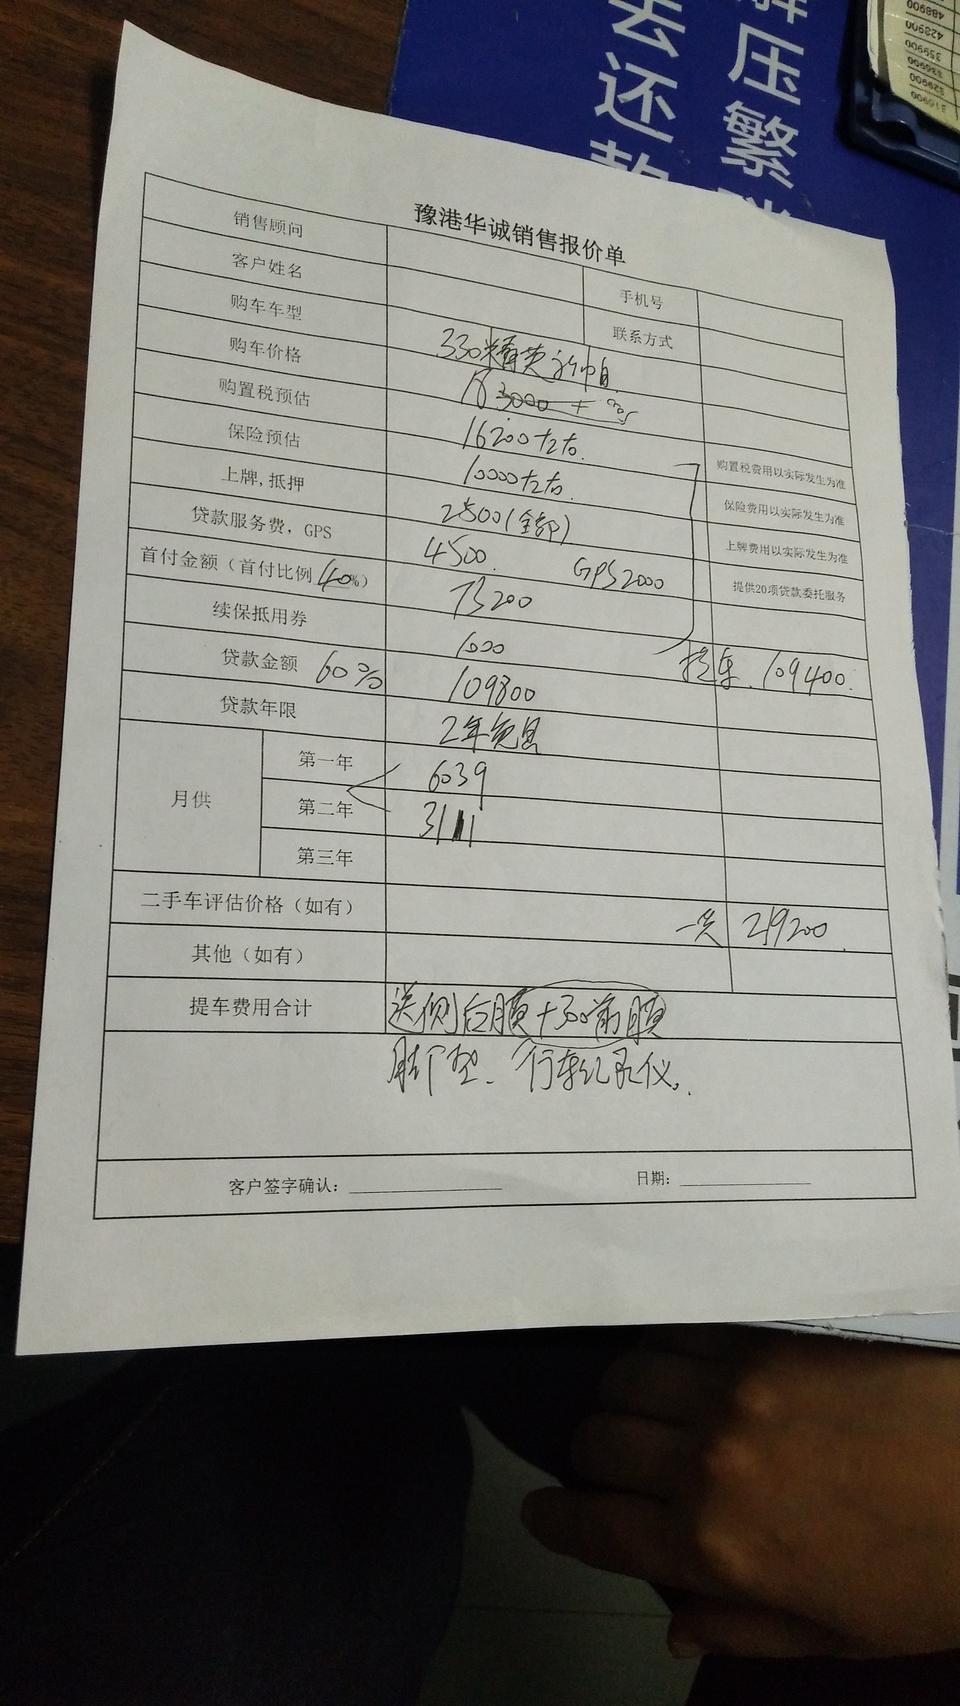 解压繁
去还款
488900
428900
359900
339900
329900
319900
豫港华诚销售报价单
销售顾问
客户姓名 手机号
购车车型 联系方式
购车价格 330精英
购置税预估 183000 +
保险预估 16200左右. 购置税费用以实际发生为准
上牌,抵押 10000左右. 保险费用以实际发生为准
贷款服务费,GPS 2500(全部) 上牌费用以实际发生为准
首付金额(首付比例40%) 4500. GPS2000 提供20项贷款委托服务
续保抵用券 73200
贷款金额 60% 1000 提车.109400.
贷款年限 109800
2年免息
月供 第一年 6039
第二年 3111
第三年
二手车评估价格(如有) 一共 219200.
其他(如有)
提车费用合计 送侧后膜+500前膜
脚垫、行车记录仪.
客户签字确认: 日期: